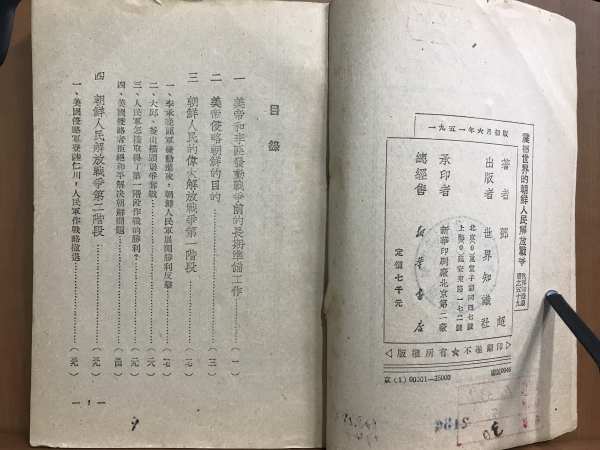 震撼世界的朝鮮人民解放戰爭
一九五一年六月初版
著者 鄧超
出版者 世界知識社
承印者 新華印刷廠北京第二廠
總經售 新華書店
定價七千元
◁版權所有☆不准翻印▷
京(1) 00001—35000
目錄
一 美帝和李匪發動戰爭前的長期準備工作……(一)
二 美帝侵略朝鮮的目的……(三)
三 朝鮮人民的偉大解放戰爭第一階段……
一、李承晚匪軍發動進攻,朝鮮人民軍展開勝利反擊……
二、大邱、釜山橋頭堡爭奪戰……
三、人民軍怎樣取得了第一階段作戰的勝利?……
四、美國侵略者拒絕和平解決朝鮮問題……
四 朝鮮人民解放戰爭第二階段……
一、美國侵略軍登陸仁川,人民軍作戰略撤退……
— 1 —